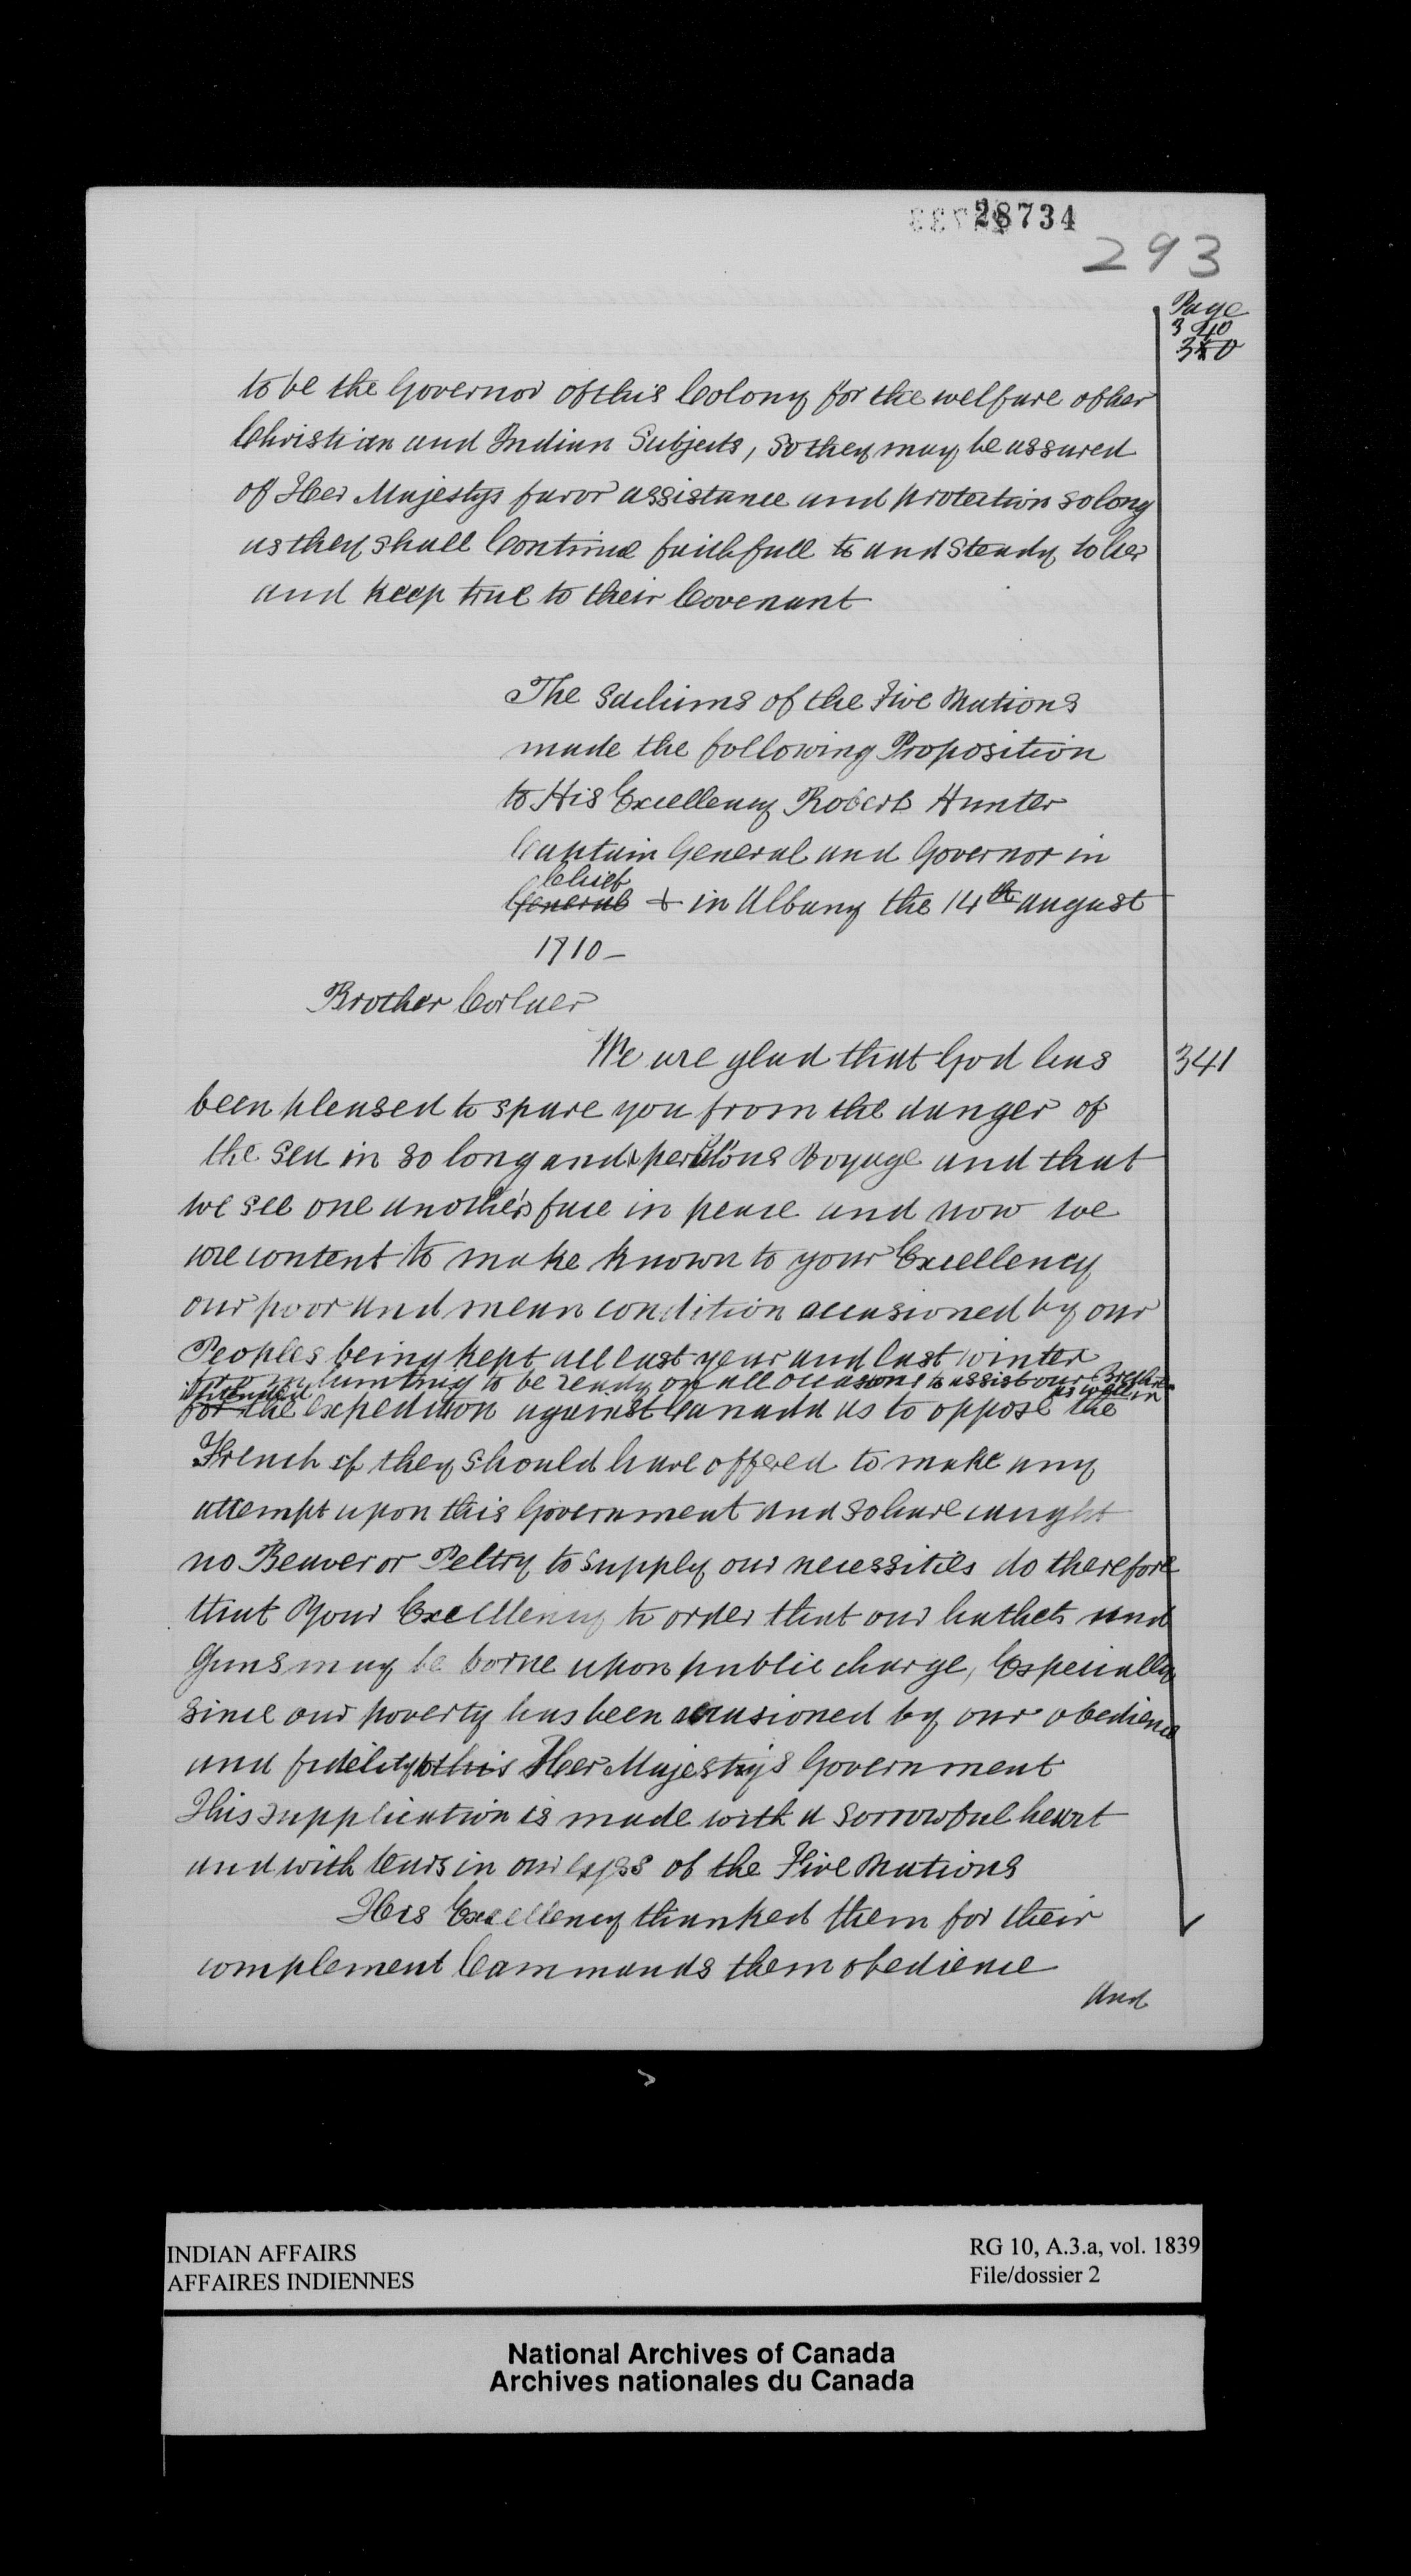 28734
293
Page
340
350
to be the Governor of this Colony for the welfare of her
Christian and Indian Subjects, so they may be assured
of Her Majestys favor assistance and protection so long
as they shall Continue faithfull to and Steady to her
and keep true to their Covenant
The Sachims of the Five Nations
made the following Proposition
to His Excellency Robert Hunter
Captain General and Governor in
Chief
General & in Albany the 14th august
1710 -
Brother Corlaer
We are glad that God has
341
been pleased to spare you from the danger of
the Sea in so long and perillous Voyage and that
we see one another's face in peace and now we
are content to make known to your Excellency
our poor and mean condition occasioned by our
Peoples being kept all last year and last winter
hunting to be ready on all occasions to assist our Brethren
intended as well in
for the expedition against Canada as to oppose the
French if they should have offered to make any
attempt upon this Government and so have caught
no Beaver or Peltry to supply our necessities do therefore
that Your Excellency to order that our hatchets and
Guns may be borne upon public charge, Especially
since our poverty has been occasioned by our obedience
and fidelity to this Her Majesty's Government
This supplication is made with a sorrowful heart
and with tears in our eyes of the Five Nations
His Excellency thanked them for their
complement Commands them obedience
and
INDIAN AFFAIRS
AFFAIRES INDIENNES
RG 10, A.3.a, vol. 1839
File/dossier 2
National Archives of Canada
Archives nationales du Canada